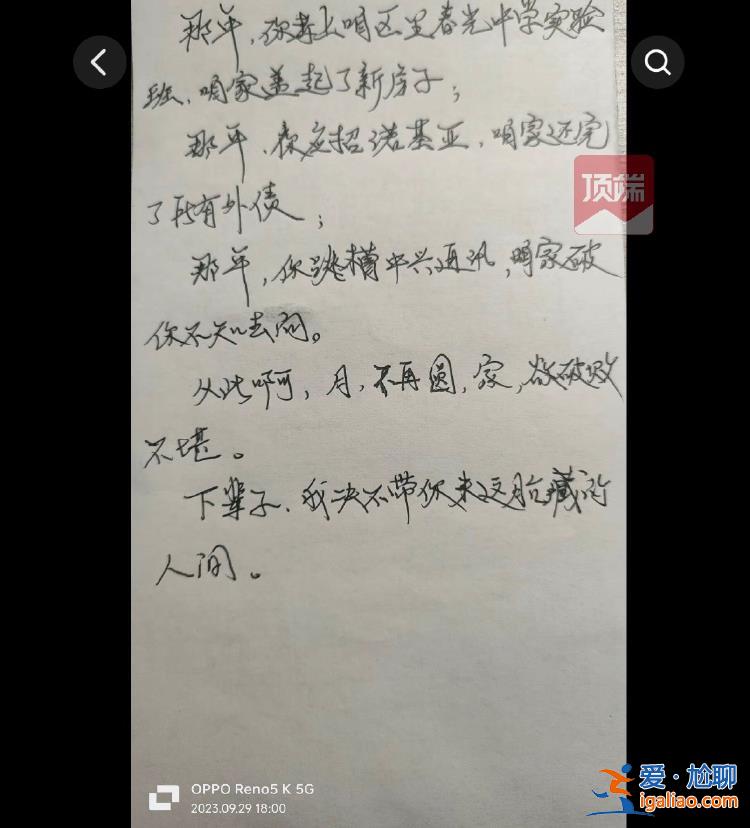 那年,你考上咱区里春光中学实验
班,咱家盖起了新房子;
那年,你应招诺基亚,咱家还完
了所有外债;
顶端
那年,你跳槽中兴通讯,咱家破
你不知去向。
从此啊,月,不再圆,家,破败
不堪。
下辈子,我决不带你来这肮藏的
人间。
OPPO Reno5 K 5G
2023.09.29 18:00
爱·尬聊
igaliao.com